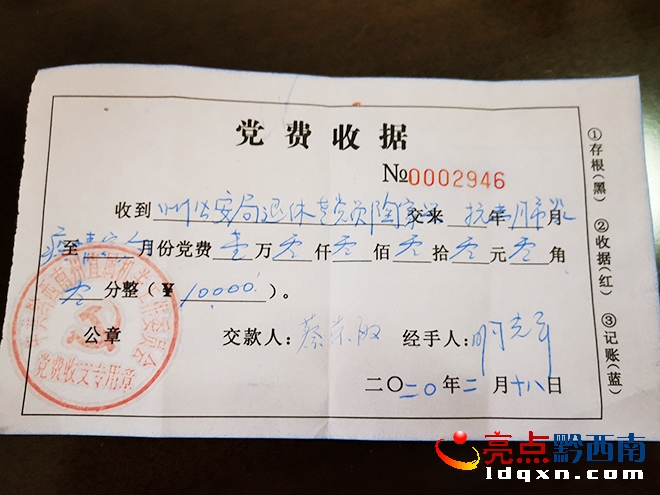 党费收据
№0002946
收到 州公安局退休老党员陶家 交来 年 月
疫情 至 月份党费 壹 万 零 仟 零 佰 零 拾 零 元 零 角
零 分整(¥ 10000 )。
公章 交款人: 蔡 经手人:
二〇二0年二月十八日
党费收支专用章
①存根(黑) ②收据(红) ③记账(蓝)
亮点黔西南
ldqxn.com